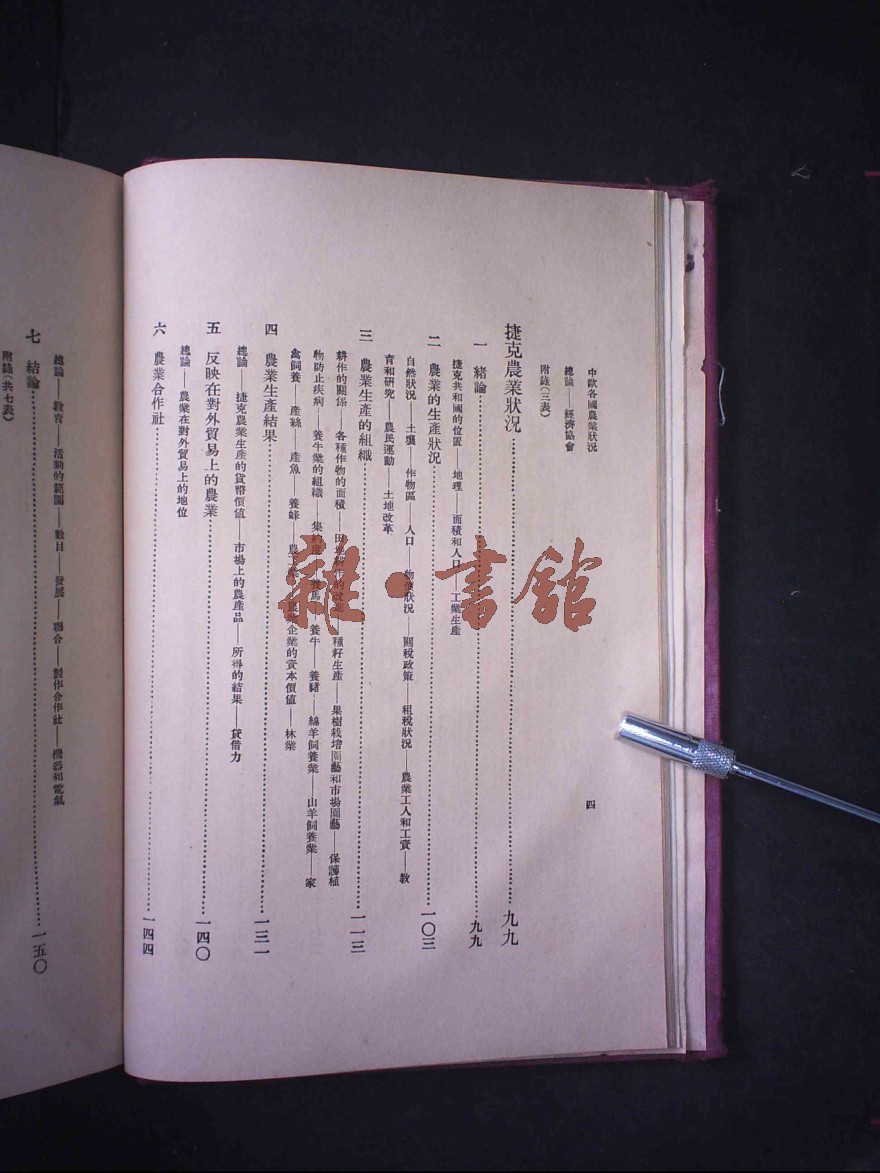 中歐各國農業狀況
四
總論——經濟協會
附錄(三表)
捷克農業狀況……九九
一 緒論……九九
捷克共和國的位置——地理——面積和人口——工業生產
二 農業的生產狀況……一〇三
自然狀況——土壤——作物區——人口——物價狀況——關稅政策——租稅狀況——農業工人和工資——教
育和研究——農民運動——土地改革
三 農業生產的組織……一一三
耕作的關係——各種作物的面積——田地耕作的改進——種籽生產——果樹栽培園藝和市場園藝——保護植
物防止疾病——養牛業的組織——集約度——養馬——養牛——養豬——綿羊飼養業——山羊飼養業——家
禽飼養——產絲——產魚——養蜂——農業企業的資本價值——林業
四 農業生產結果……一三一
總論——捷克農業生產的貨幣價值——市場上的農產品——所得的結果——貸借力
五 反映在對外貿易上的農業……一四〇
總論——農業在對外貿易上的地位
六 農業合作社……一四四
總論——教育——活動的範圍——數目——發展——聯合——製作合作社——機器和電氣
七 結論……一五〇
附錄(共七表)
雜·書館